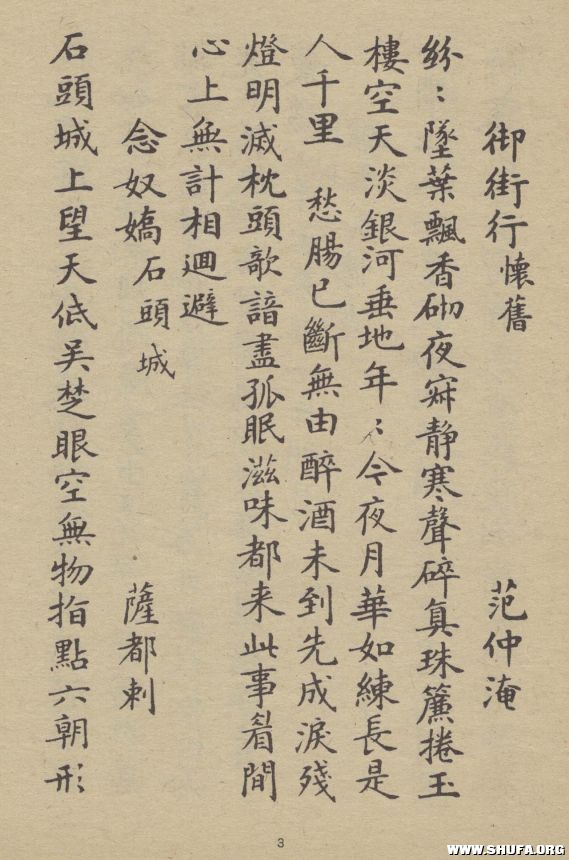 御街行 懷舊 范仲淹
紛〻墜葉飄香砌夜寂静寒聲碎真珠簾捲玉
樓空天淡銀河垂地年〻今夜月華如練長是
人千里 愁腸已斷無由醉酒未到先成淚殘
燈明滅枕頭欹諳盡孤眠滋味都来此事眉間
心上無計相迴避
念奴嬌 石頭城 薩都剌
石頭城上望天低吴楚眼空無物指點六朝形
3
WWW.SHUFA.ORG